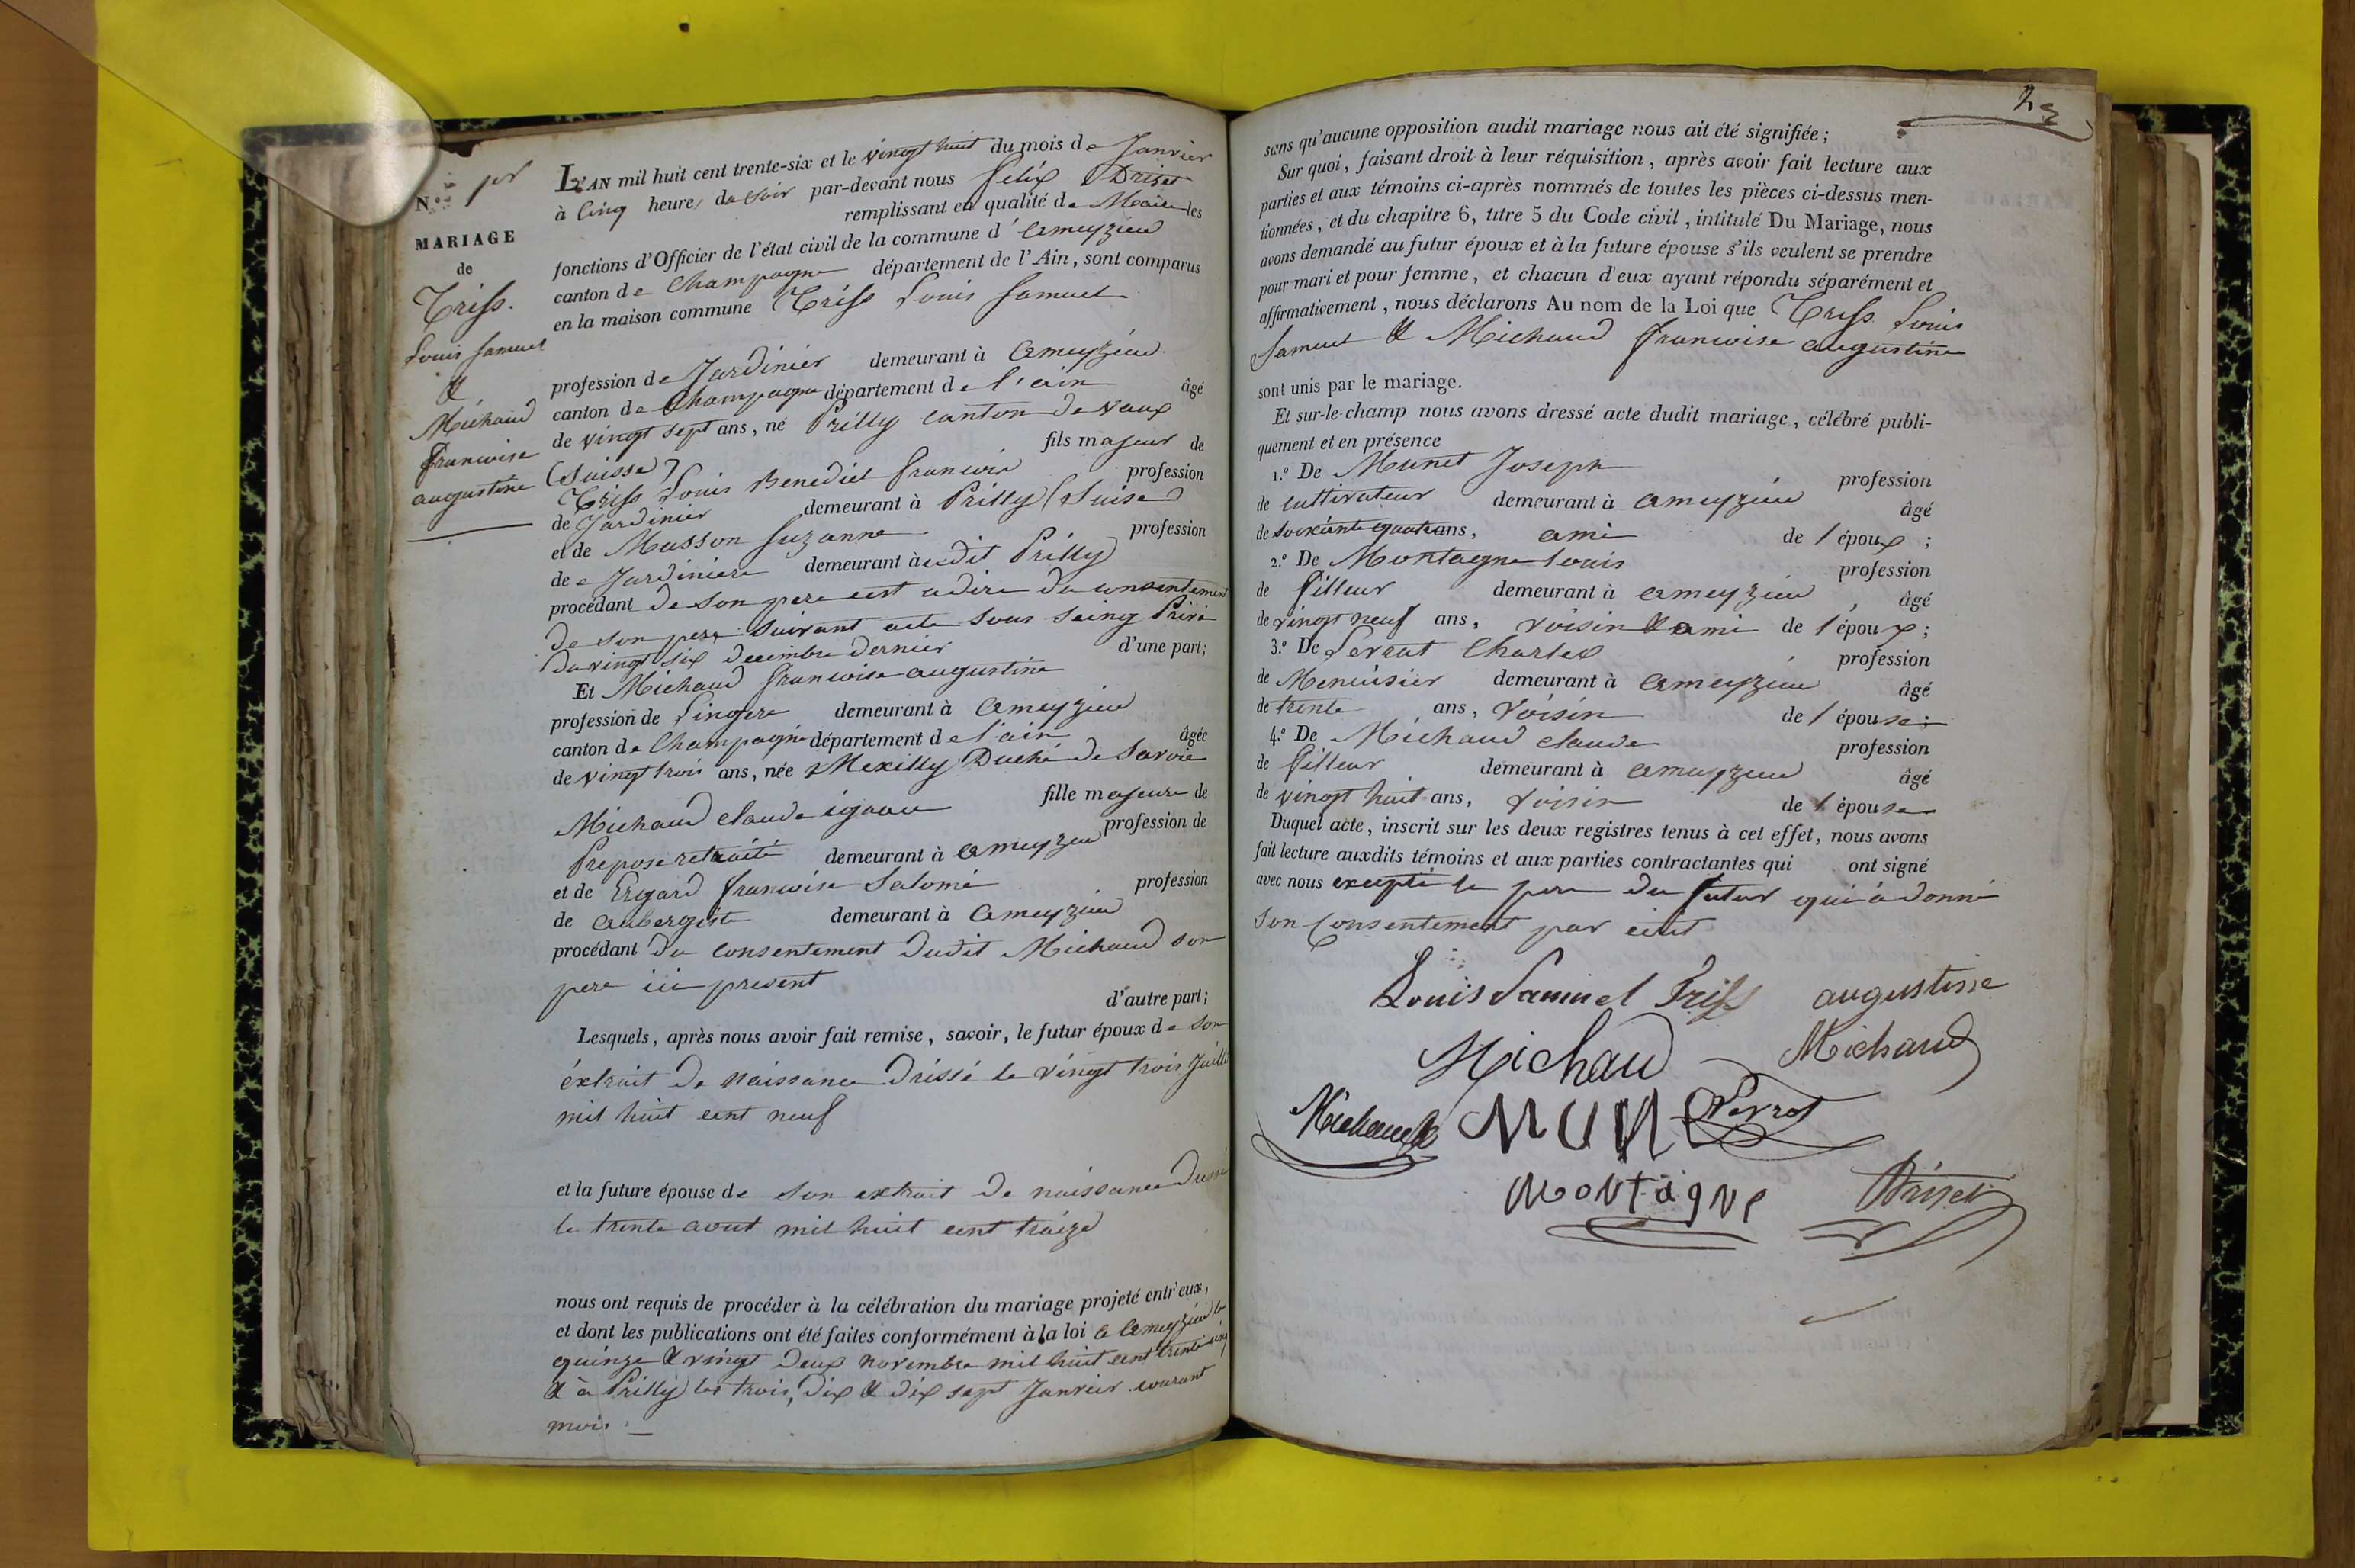 N.o 1er
MARIAGE
de
Triss.
Louis Samuel
&
Michaud
francoise
augustine
L'AN mil huit cent trente-six et le vingt huit du mois de Janvier
à cinq heures du soir par-devant nous félix Drizet
remplissant en qualité de Maire les
fonctions d'Officier de l'état civil de la commune d'ameyzieu
canton de Champagne département de l'Ain, sont comparus
en la maison commune Triss Louis Samuel
profession de Jardinier demeurant à ameyzieu
canton de Champagne département de l'ain âgé
de vingt sept ans, né Prilly canton de vaux
(Suisse) fils majeur de
Triss Louis Benediet francois profession
de Jardinier demeurant à Prilly (Suise)
et de Masson Suzanne profession
de Jardiniere demeurant audit Prilly
procédant de son pere cest adire du consentement
de son pere suivant acte sous seing Privé
du vingt six decembre dernier d'une part;
Et Michaud francoise augustine
profession de Lingere demeurant à ameyzieu
canton de Champagne département de l'ain âgée
de vingt trois ans, née à Mexilly Duché de Savoie
fille majeure de
Michaud claude ignace profession de
Preposé retraité demeurant à ameyzieu
et de Ergard francoise Salomé profession
de aubergiste demeurant à ameyzieu
procédant du consentement dudit Michaud son
pere ici present
d'autre part;
Lesquels, après nous avoir fait remise, savoir, le futur époux de son
éxtrait de naissance drissé le vingt trois Juillet
mil huit cent neuf
et la future épouse de son extrait de naissance
le trente aout mil huit cent traize
nous ont requis de procéder à la célébration du mariage projeté entr'eux,
et dont les publications ont été faites conformément à la loi a ameyzieu le
quinze & vingt deux novembre mil huit cent trente cinq
& à Prilly les trois, dix & dix sept Janvier courant
mois.
sans qu'aucune opposition audit mariage nous ait été signifiée;
Sur quoi, faisant droit à leur réquisition, après avoir fait lecture aux
parties et aux témoins ci-après nommés de toutes les pièces ci-dessus men-
tionnées, et du chapitre 6, titre 5 du Code civil, intitulé Du Mariage, nous
avons demandé au futur époux et à la future épouse s'ils veulent se prendre
pour mari et pour femme, et chacun d'eux ayant répondu séparément et
affirmativement, nous déclarons Au nom de la Loi que Triss Louis
Samuel & Michaud francoise augustine
sont unis par le mariage.
Et sur-le-champ nous avons dressé acte dudit mariage, célébré publi-
quement et en présence
1.o De Munet Joseph profession
de cultivateur demeurant à ameyzieu âgé
de soixante quatre ans, ami de l'époux;
2.o De Montagne Louis profession
de Tilleur demeurant à ameyzieu, âgé
de vingt neuf ans, voisin & ami de l'époux;
3.o De Perrat Charles profession
de Menuisier demeurant à ameyzieu âgé
de trente ans, voisin de l'épouse;
4.o De Michaud claude profession
de Tilleur demeurant à ameyzieu âgé
de vingt huit ans, voisin de l'épouse
Duquel acte, inscrit sur les deux registres tenus à cet effet, nous avons
fait lecture auxdits témoins et aux parties contractantes qui ont signé
avec nous excepté le pere du futur qui à donné
son Consentement par écrit
Louis Samuel Triss augustine
Michaud Michaud
Michaud MUNE Perrot
Montagne Drizet